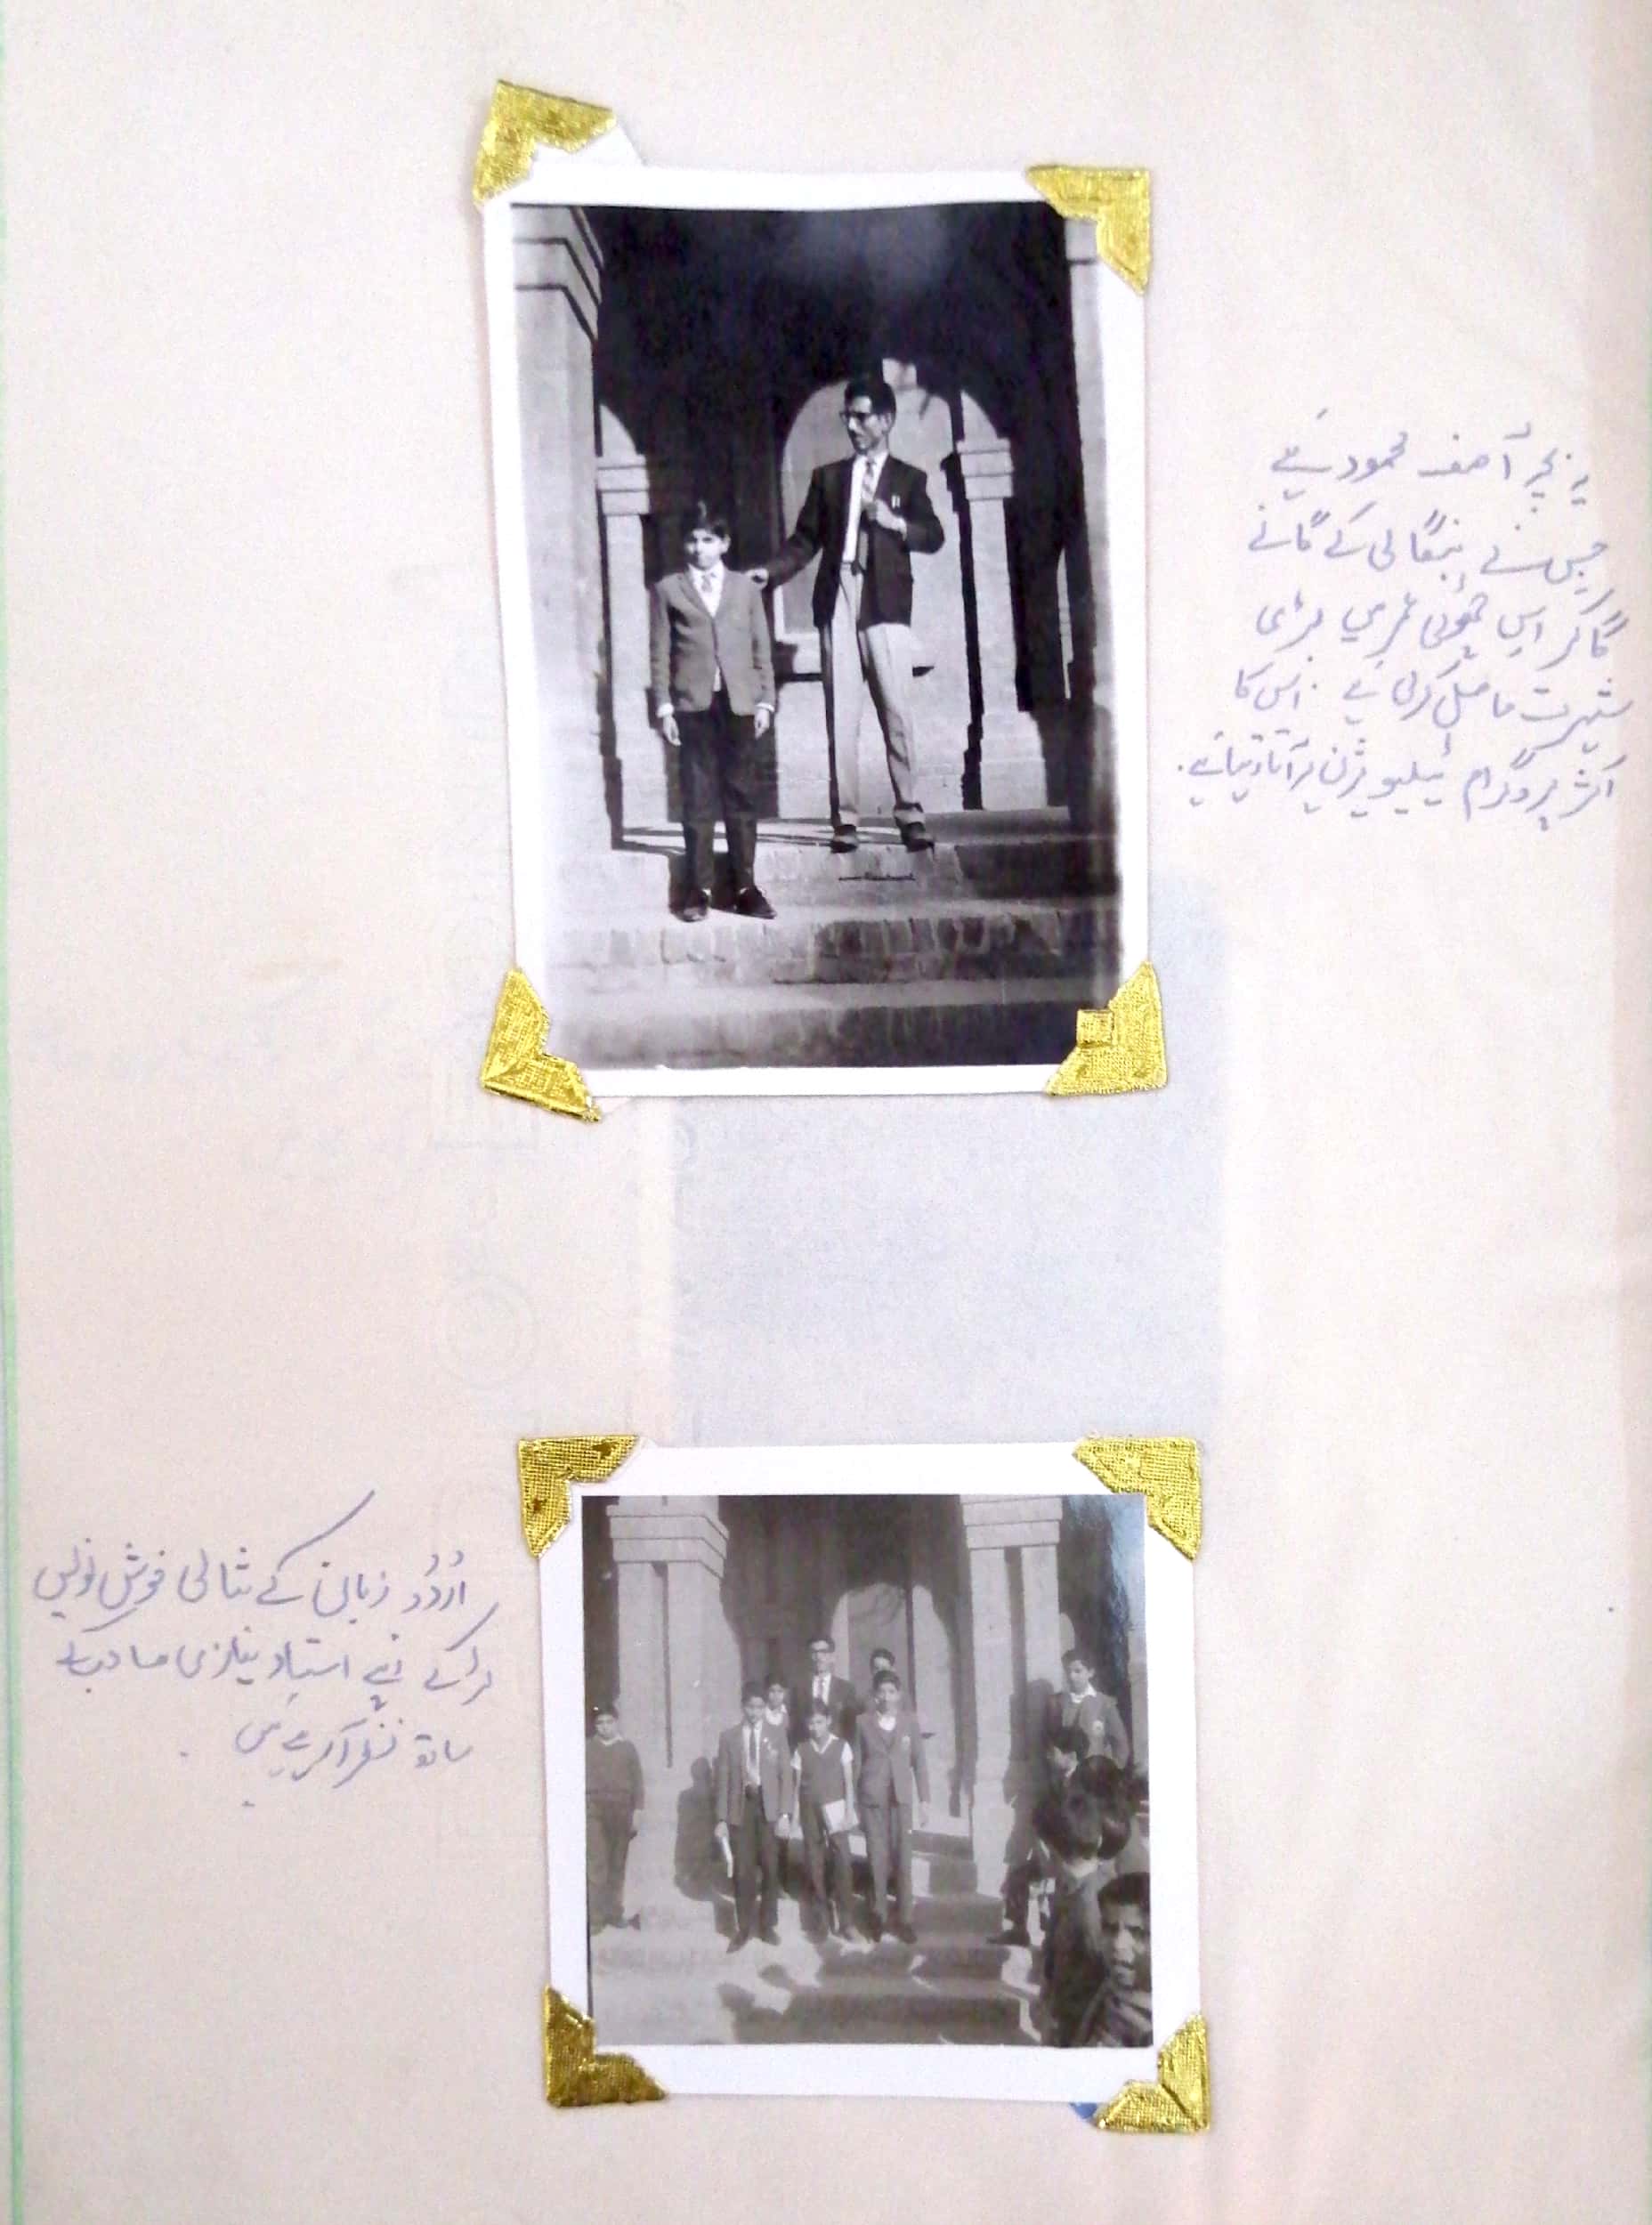 یہ بچہ آصف محمود ہے
جس نے بنگالی کے گانے
گا کر اس چھوٹی عمر میں بڑی
شہرت حاصل کر لی ہے۔ اس کا
اکثر پروگرام ٹیلیویژن پر آتا رہتا ہے۔
اُردُو زبان کے مثالی خوش نویس
لڑکے اپنے استاد نیازی صاحب کے
ساتھ نظر آ رہے ہیں۔